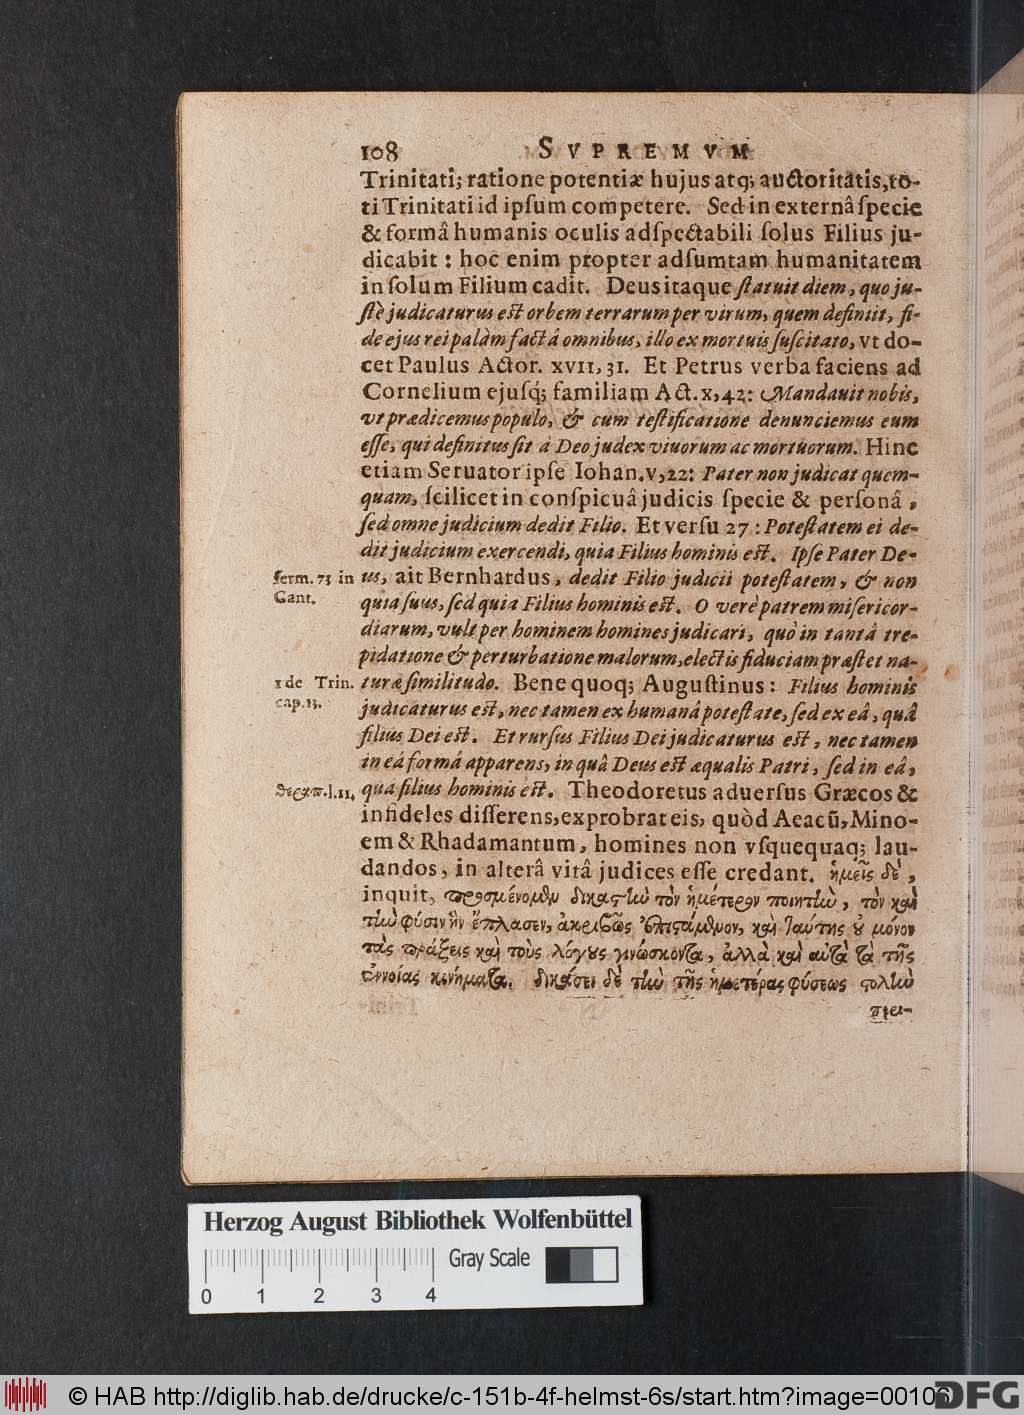 108 SVPREMVM
Trinitati; ratione potentiæ hujus atq; auctoritatis, to-
ti Trinitati id ipſum competere. Sed in externâ ſpecie
& formâ humanis oculis adſpectabili ſolus Filius ju-
dicabit : hoc enim propter adſumtam humanitatem
in ſolum Filium cadit. Deus itaque ſtatuit diem, quo ju-
ſtè judicaturus eſt orbem terrarum per virum, quem definiit, fi-
de ejus rei palàm factâ omnibus, illo ex mortuis ſuſcitato, vt do-
cet Paulus Actor. XVII, 31. Et Petrus verba faciens ad
Cornelium ejuſq; familiam Act. X, 42: Mandauit nobis,
vt prædicemus populo, & cum teſtificatione denunciemus eum
eſſe, qui definitus ſit á Deo judex viuorum ac mortuorum. Hinc
etiam Seruator ipſe Iohan. V, 22: Pater non judicat quem-
quam, ſcilicet in conſpicuâ judicis ſpecie & perſonâ,
ſed omne judicium dedit Filio. Et verſu 27 : Poteſtatem ei de-
dit judicium exercendi, quia Filius hominis eſt. Ipſe Pater De-
ſerm. 73 in
Cant.
us, ait Bernhardus, dedit Filio judicii poteſtatem, & non
quia ſuus, ſed quia Filius hominis eſt. O verè patrem miſericor-
diarum, vult per hominem homines judicari, quò in tantâ tre-
pidatione & perturbatione malorum, electis fiduciam præſtet na-
1 de Trin.
cap. 13.
turæ ſimilitudo. Bene quoq; Auguſtinus: Filius hominis
judicaturus eſt, nec tamen ex humanâ poteſtate, ſed ex eâ, quâ
filius Dei eſt. Et rurſus Filius Dei judicaturus eſt, nec tamen
in eá formâ apparens, in quâ Deus eſt æqualis Patri, ſed in eâ,
θεραπ. l. 11.
quá filius hominis eſt. Theodoretus aduerſus Græcos &
infideles differens, exprobrat eis, quòd Aeacũ, Mino-
em & Rhadamantum, homines non vſquequaq; lau-
dandos, in alterâ vitâ judices eſſe credant. ἡμεῖς δὲ,
inquit, προσμένομεν δικαστὴν τὸν ἡμέτερον ποιητὴν, τὸν καὶ
τὴν φύσιν ἣν ἔπλασεν, ἀκριβῶς ἐπιστάμενον, καὶ ταύτης οὐ μόνον
τὰς πράξεις καὶ τοὺς λόγους γινώσκοντα, ἀλλὰ καὶ αὐτὰ τὰ τῆς
ἐννοίας κινήματα. δικάσει δὲ τὴν τῆς ἡμετέρας φύσεως στολὴν
περι-
Herzog August Bibliothek Wolfenbüttel
Gray Scale
0 1 2 3 4
© HAB http://diglib.hab.de/drucke/c-151b-4f-helmst-6s/start.htm?image=00106
DFG